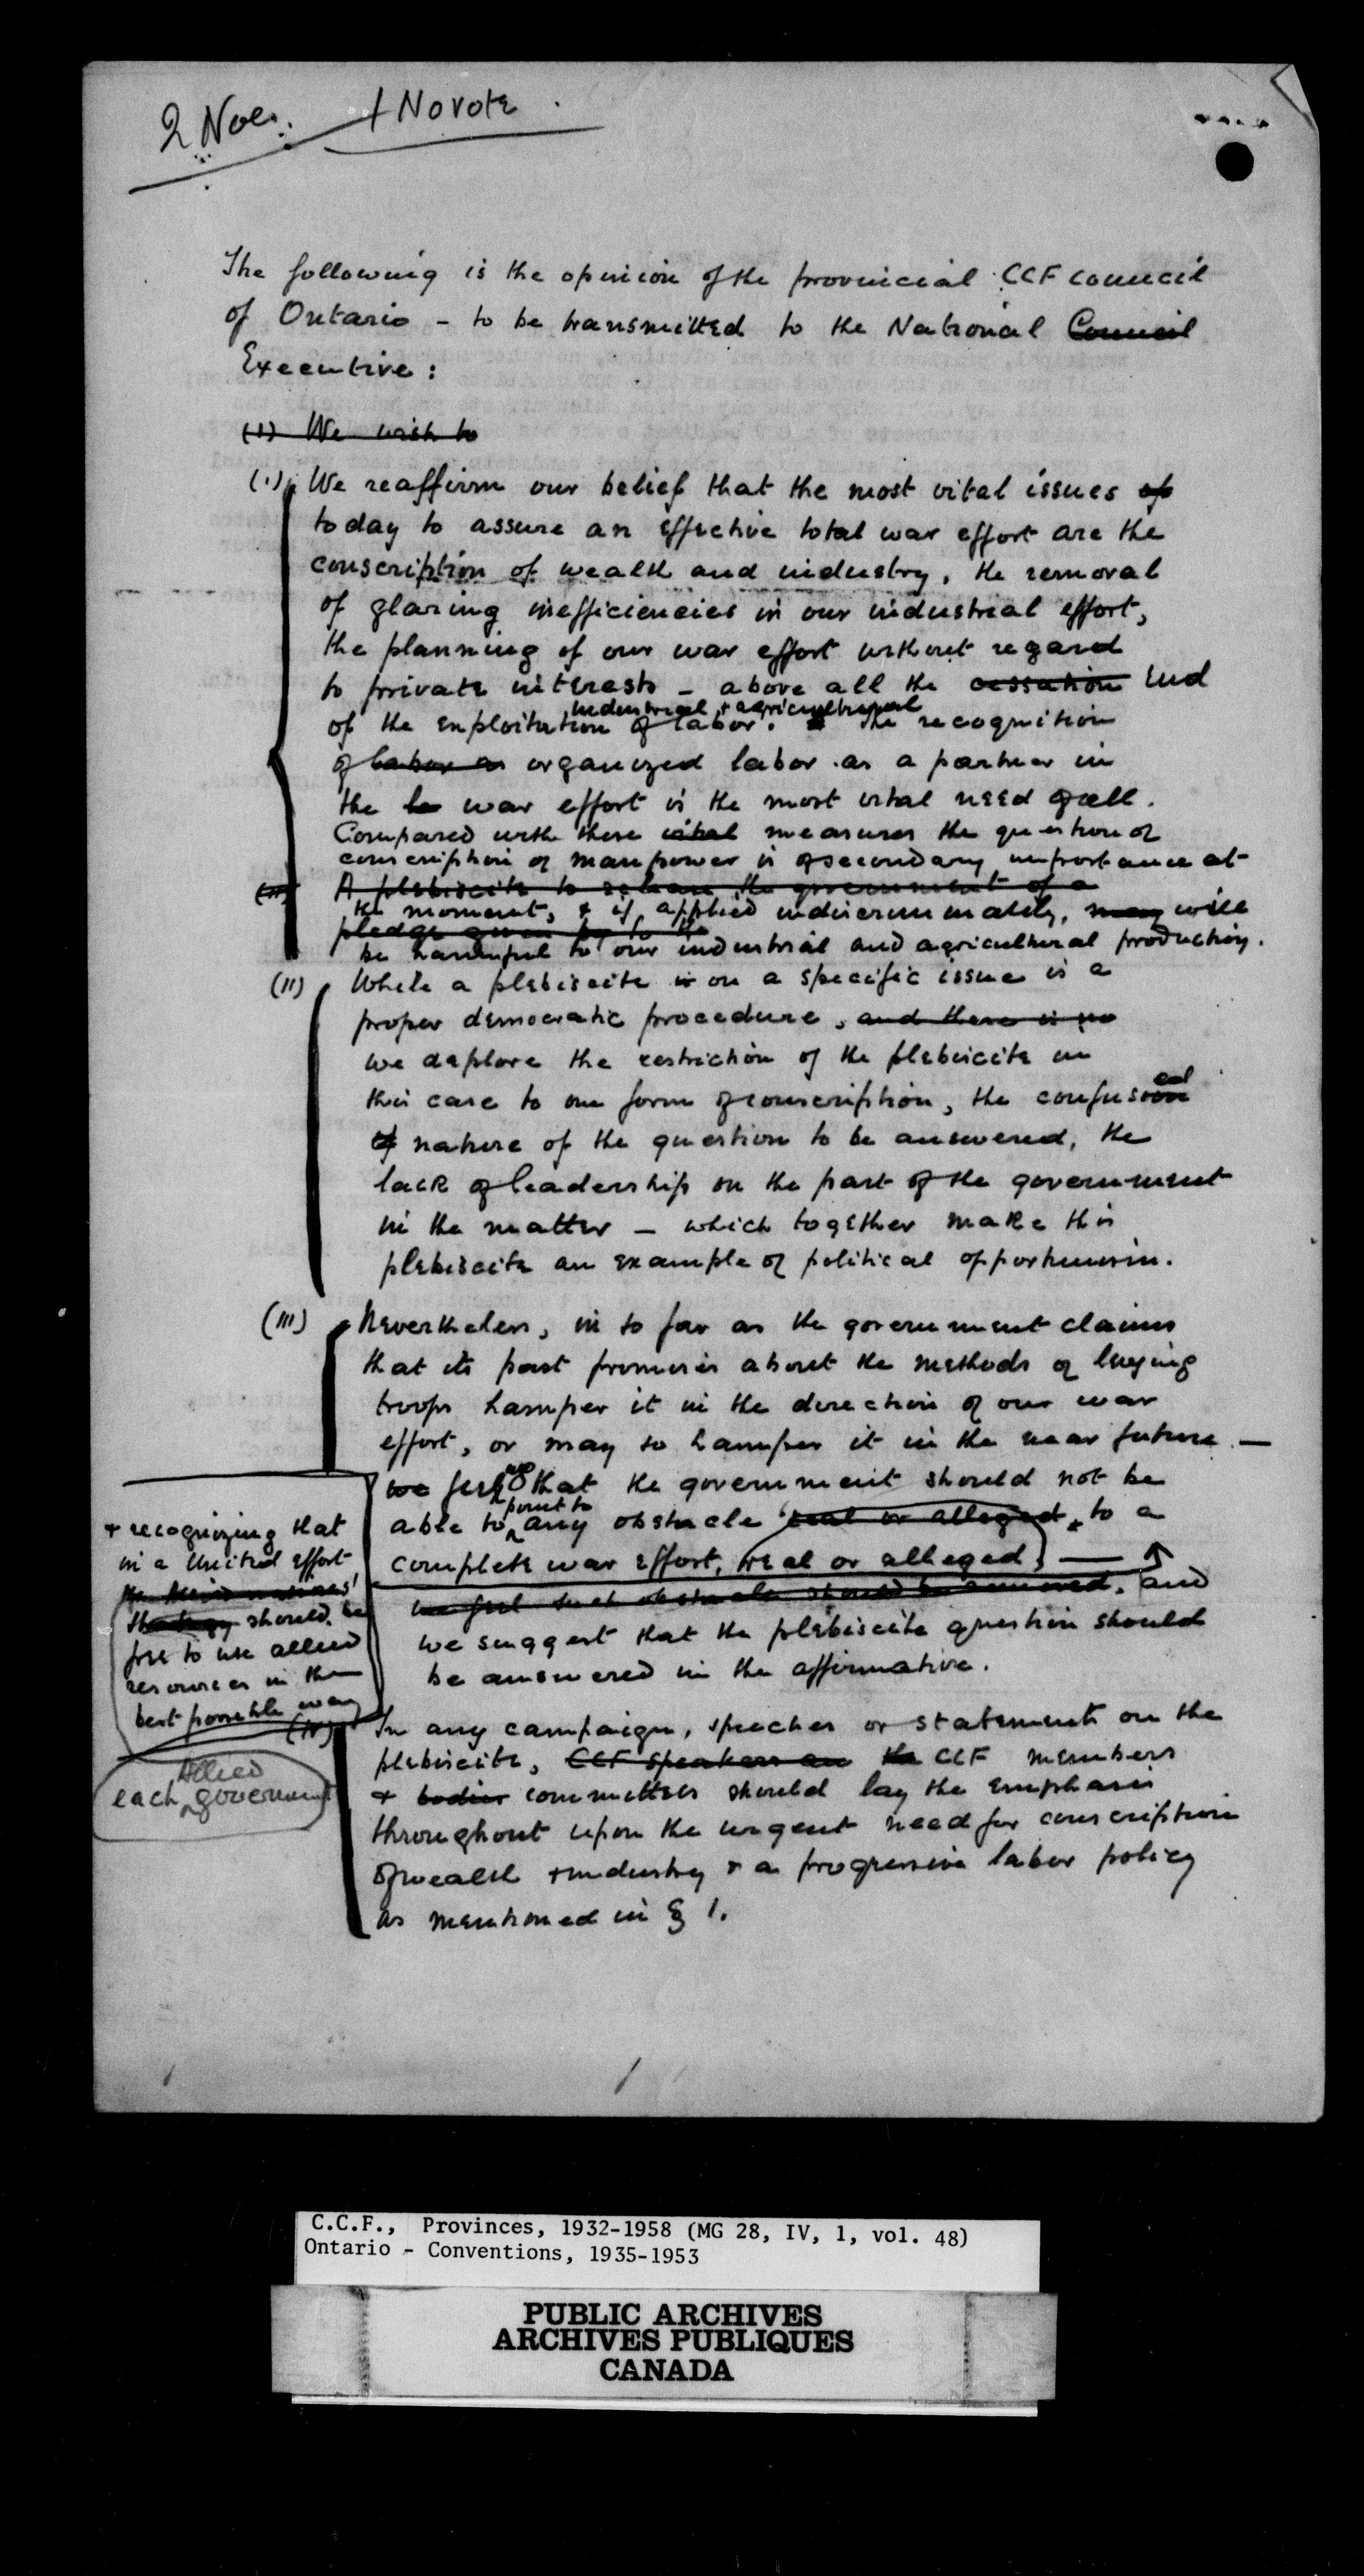 2 Noes. 1 No vote.
The following is the opinion of the provincial CCF council
of Ontario - to be transmitted to the National Council
Executive:
(1) We wish to
(1) We reaffirm our belief that the most vital issues of
today to assure an effective total war effort are the
conscription of wealth and industry, the removal
of glaring inefficiencies in our industrial effort,
the planning of our war effort without regard
to private interests - above all the cessation end
industrial + agricultural
of the exploitation of labor. The recognition
of labor as organized labor as a partner in
the war effort is the most vital need of all.
Compared with these vital measures the question of
conscription of manpower is of secondary importance at
(II) A plebiscite to release the government of a
the moment, & if applied indiscriminately, may will
pledge given by to the
be harmful to our industrial and agricultural production.
(II) While a plebiscite is on a specific issue is a
proper democratic procedure, and there is no
we deplore the restriction of the plebiscite in
this case to one form of conscription, the confused
of nature of the question to be answered, the
lack of leadership on the part of the government
in the matter - which together make this
plebiscite an example of political opportunism.
(III) Nevertheless, in so far as the government claims
that its past promises about the methods of
troops hamper it in the direction of our war
effort, or may so hamper it in the near future -
we feel that the government should not be
point to
able to any obstacle real or alleged, to a
complete war effort, real or alleged, -
we feel such obstacle should be removed. and
we suggest that the plebiscite question should
be answered in the affirmative.
+ recognizing that
in a United effort
should be
free to use allied
resources in the
best possible way
Allied
each government
(IV) In any campaign, speeches or statements on the
plebiscite, CCF speakers an the CCF members
+ bodies committees should lay the emphasis
throughout upon the urgent need for conscription
of wealth + industry & a progressive labor policy
as mentioned in § 1.
C.C.F., Provinces, 1932-1958 (MG 28, IV, 1, vol. 48)
Ontario - Conventions, 1935-1953
PUBLIC ARCHIVES
ARCHIVES PUBLIQUES
CANADA